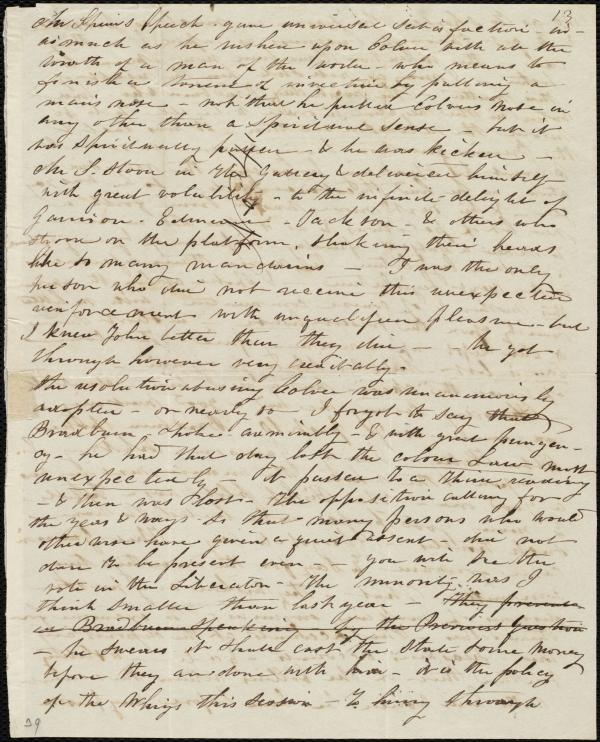 13
Mr Spear's Speech gave universal satisfaction - in-
asmuch as he rushed upon Colver with all the
wrath of a man of the world - who means to
finish a torrent of invective by pulling a
man's nose - not that he pulled Colver's nose in
any other than a spiritual sense - but it
was Spiritually pulled - & he was kicked -
Mr S. stood in the gallery & delivered himself
with great volubility - to the infinite delight of
Garrison - Edmund - Jackson - & others who
stood on the platform, shaking their heads
like so many mandarins - I was the only
person who did not receive this unexpected
reinforcement with unqualified pleasure - but
I knew John better than they did - he got
through however very creditably -
the resolution abusing Colver was unanimously
adopted - or nearly so - I forgot to say that
Bradburn spoke admirably - & with great pungen-
cy - he had that day lost the colour Law most
unexpectedly - it passed to a third reading
- & then was lost - the opposition calling for
the yeas & nays - so that many persons who would
otherwise have given a quiet assent - did not
dare to be present even - you will see the
vote in the Liberator - the minority was I
think smaller than last year - They prevented
Bradburn speaking by the Previous Question
- he swears it shall cost the State some money
before they are done with him - it is the policy
of the Whigs this session - to hurry through
39